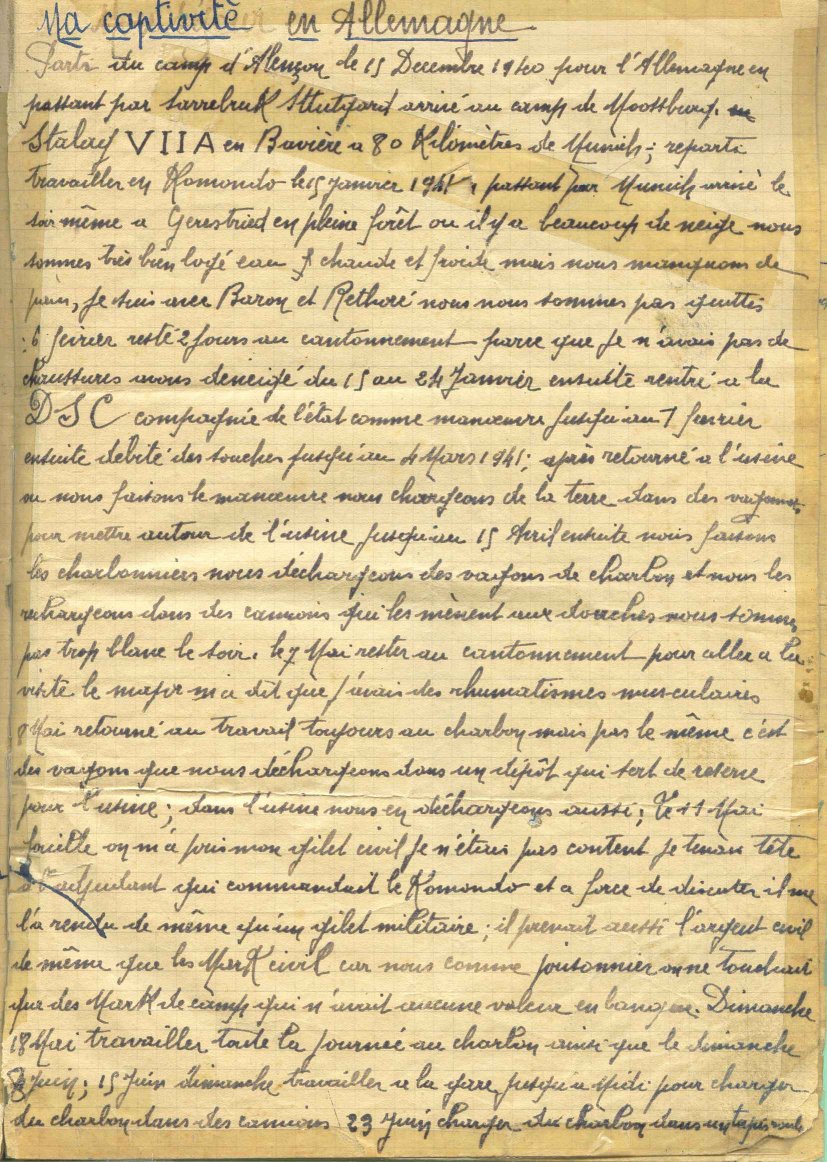 Ma captivité en Allemagne
Partis du camp d'Alençon le 15 Decembre 1940 pour l'Allemagne en
passant par Sarrebruk Stutgard arrivé au camp de Moossburg.
Stalag VII A en Bavière a 80 Kilomètres de Munich; reparti
travailler en Komondo le 15 Janvier 1941, passant par Munich arrivé le
soir même a Gerestried en pleine forêt ou il y a beaucoup de neige nous
sommes très bien logé eau chaude et froide mais nous manquons de
pain, Je suis avec Baron et Rethoré nous nous sommes pas quittés
6 fevrier resté 2 Jours au cantonnement parce que Je n'avais pas de
chaussures avons deneigé du 15 au 24 Janvier ensuite rentré a la
DSC compagnie de l'état comme manœuvre Jusqu'au 7 fevrier
ensuite débité des souches Jusqu'au 4 Mars 1941; après retourné a l'usine
ou nous faisons le manœuvre nous chargeons de la terre dans des vagonnets
pour mettre autour de l'usine Jusqu'au 15 Avril ensuite nous faisons
les charbonniers nous déchargeons des vagons de charbon et nous les
rechargeons dans des camions qui les mènent aux douches nous sommes
pas trop blanc le soir. le 7 Mai rester au cantonnement pour aller a la
visite le major m'a dit que J'avais des rhumatismes musculaires
8 Mai retourné au travail toujours au charbon mais pas le même c'est
des vagons que nous déchargeons dans un dépôt qui sert de reserve
pour l'usine; dans l'usine nous en déchargeons aussi; Le 11 Mai
fouille on m'a pris mon gilet civil Je n'étais pas content Je tenais tête
a l'adjudant qui commandait le Komondo et a force de discuter il me
l'a rendu de même qu'un gilet militaire; il prenait aussi l'argent civil
de même que les Mark civil car nous comme prisonnier on ne touchait
que des Mark de camp qui n'avait aucune valeur en banque. Dimanche
18 Mai travailler toute la Journeé au charbon ainsi que le dimanche
8 Juin; 15 Juin dimanche travailler a la gare Jusqu'a Midi pour charger
du charbon dans des camions 23 Juin charger du charbon dans un tapis roulant